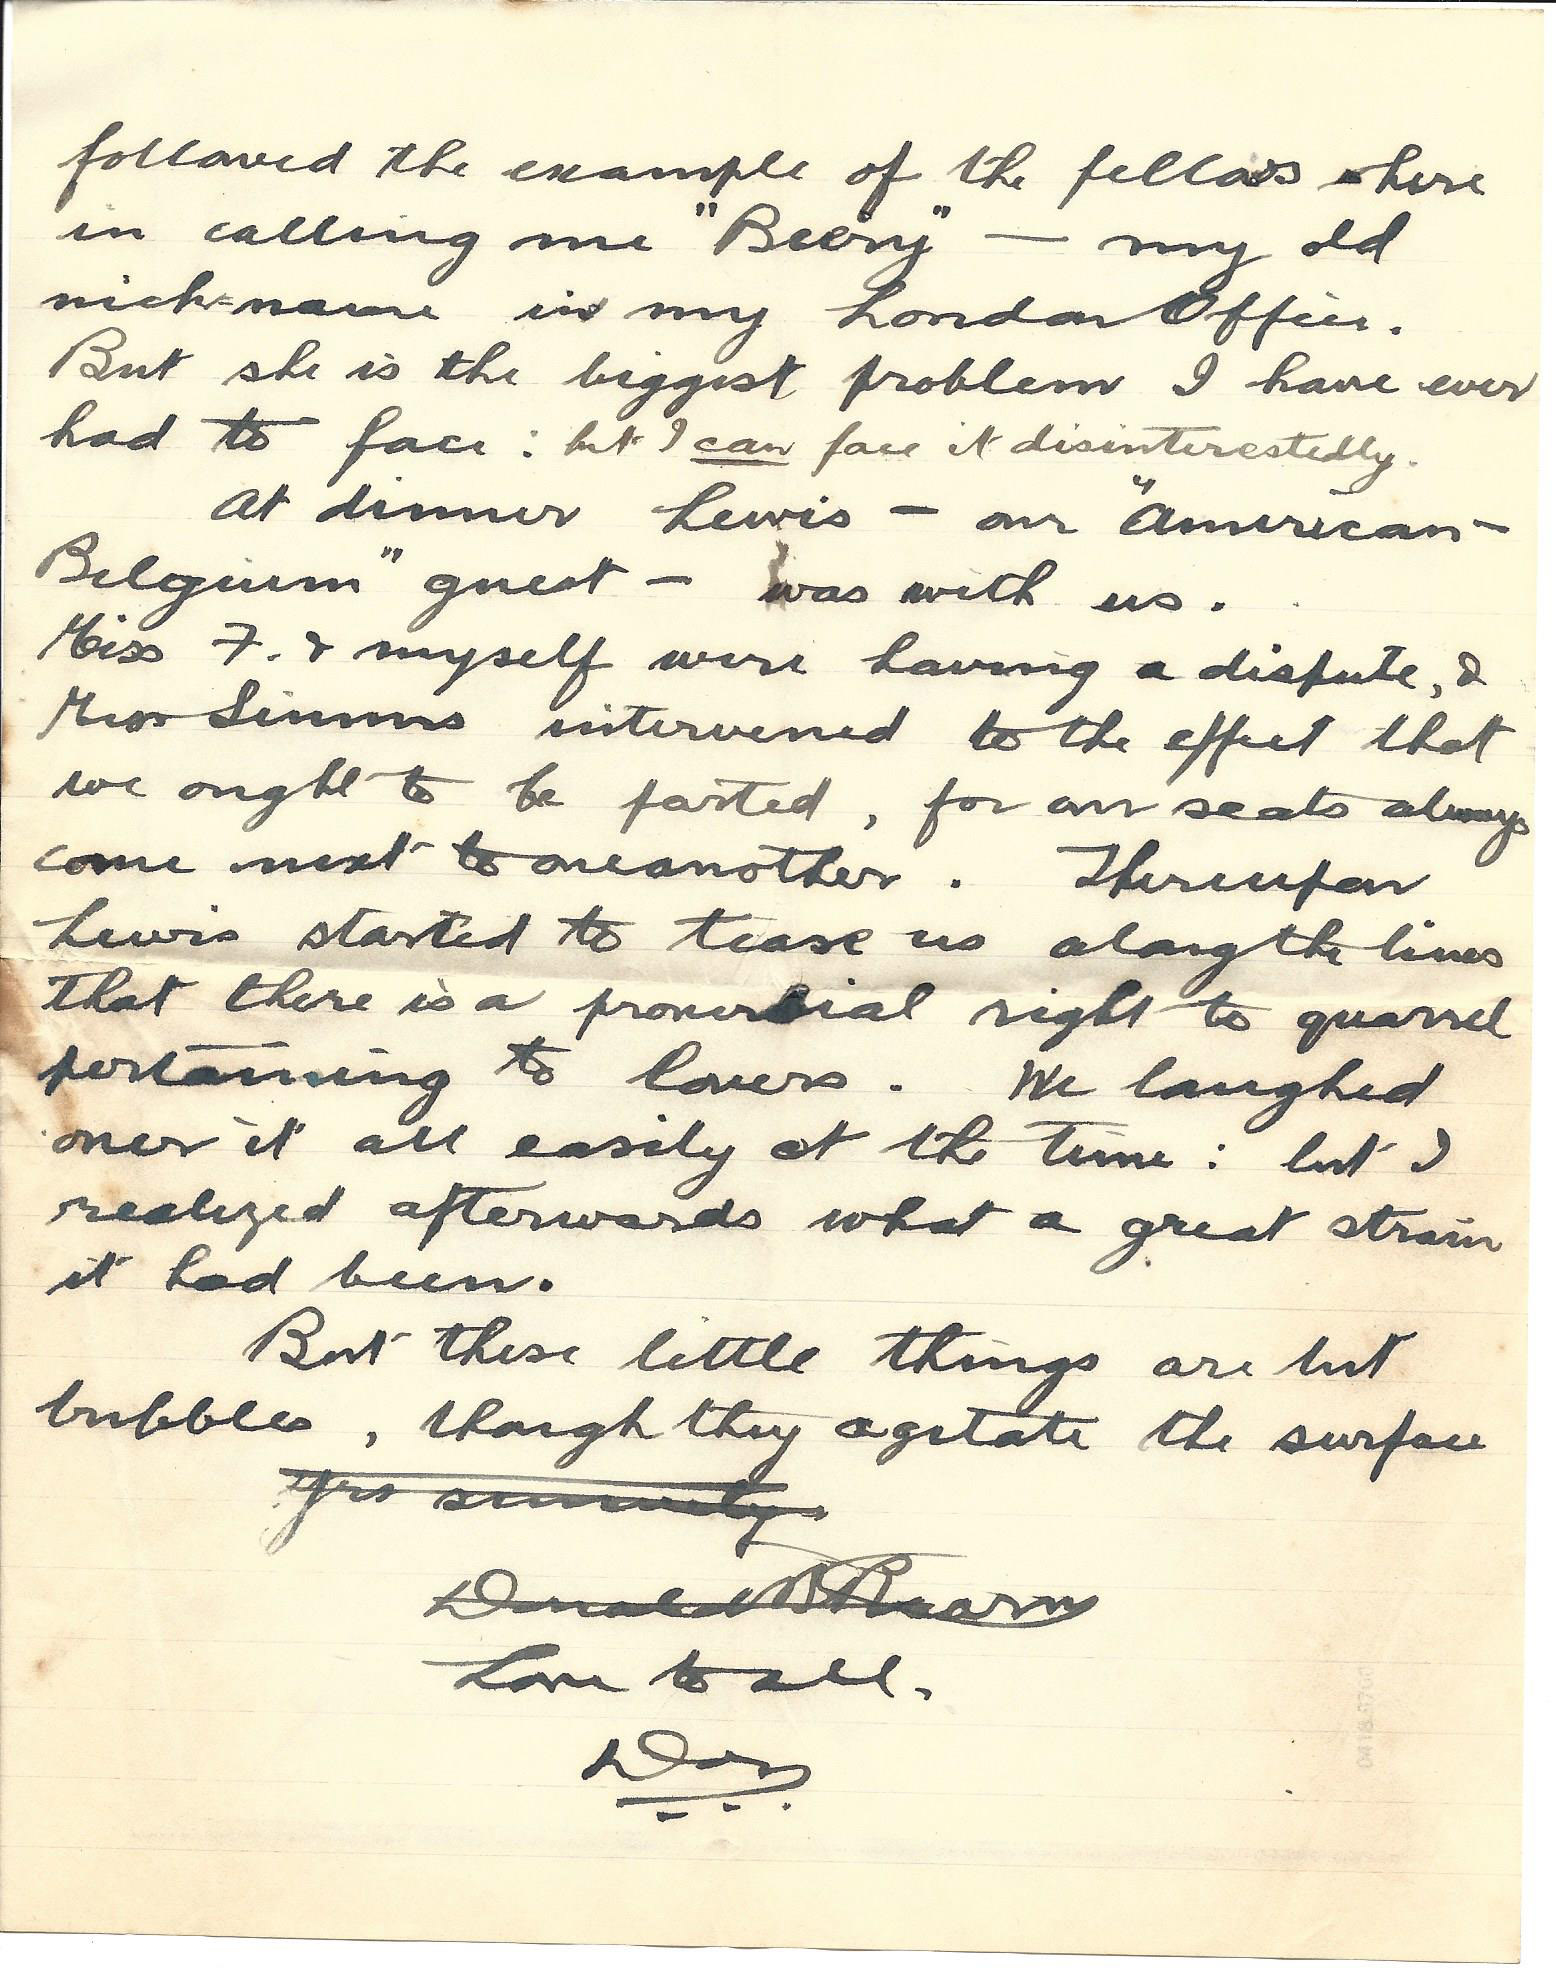 followed the example of the fellows here
in calling me " " — my old
nick-name in my London Office.
But she is the biggest problem I have ever
had to face : but I can face it disinterestedly.
At dinner Lewis — our "American-
Belgium" guest — was with us.
Miss F. & myself were having a dispute, &
Miss Simms intervened to the effect that
we ought to be parted, for our seats always
come next to oneanother. Thereupon
Lewis started to tease us along the lines
that there is a proverbial right to quarrel
pertaining to lovers. We laughed
over it all easily at the time : but I
realized afterwards what a great strain
it had been.
But these little things are but
bubbles, though they agitate the surface
Yrs sincerely.
Donald B Bearn
Love to all.
Don